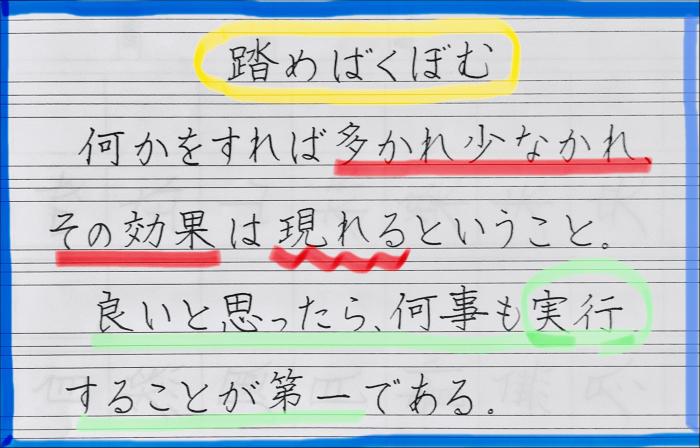 踏めばくぼむ
何かをすれば多かれ少なかれ
その効果は現れるということ。
良いと思ったら、何事も実行
することが第一である。